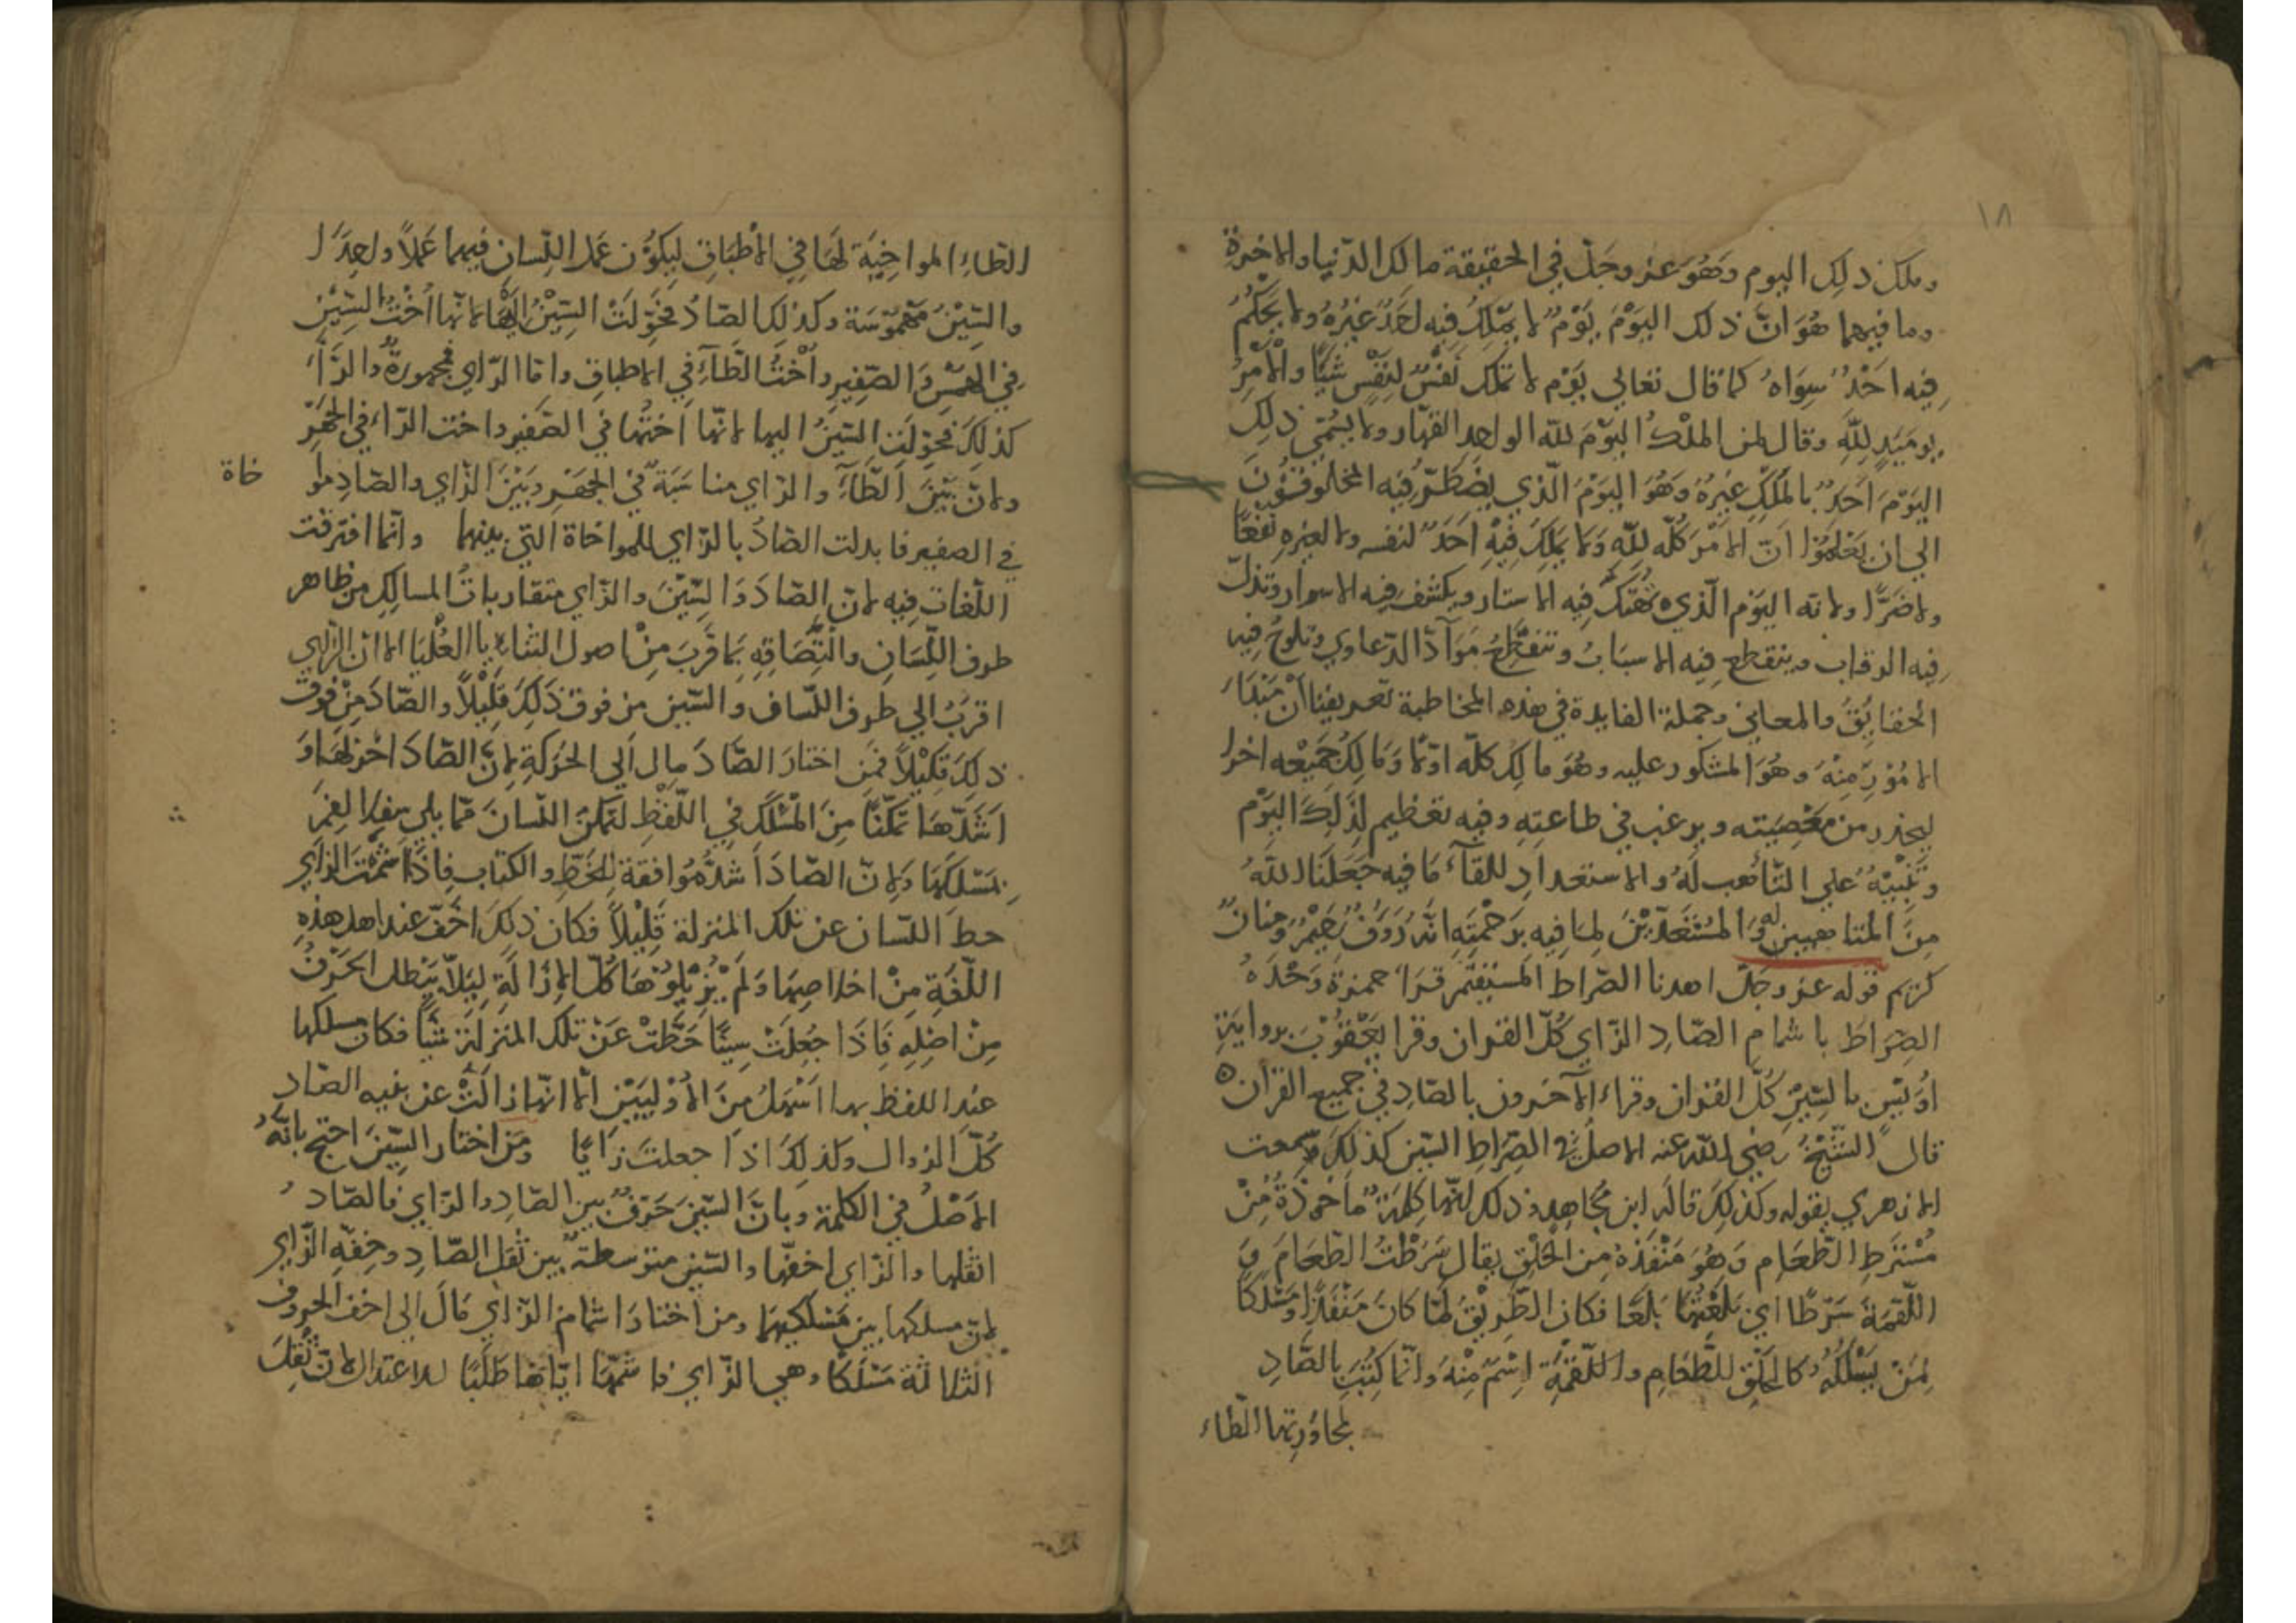 ١٨
وملك ذلك اليوم وَهُوَ عز وجَلّ في الحقيقة مالك الدّنيا والاخرة
وما فيهما هُوَ انّ ذلك اليَوْمَ يَوْمٌ لا يَمْلِكُ فِيه احَدٌ غيْرُهُ ولا يَحْكُمُ
فِيه احَدٌ سِوَاهُ كما قال تعالي يَوْم لا تملك نَفْسٌ لِنَفْسٍ شَيًا والأَمْرُ
يوميَذٍ لِلَّهِ وقال لمن المُلْكُ اليَوْمَ لله الواحِد القهّار ولا يُسَمّى ذلِكَ
اليَوْمَ احَدٌ بالمَلِك غيْرهُ وَهُوَ اليَوْمَ الّذي يضطَرّ فِيه المخلوقون
الي ان يَعْلَمُوا اَنّ الاَمْرَ كلّه لِلّه وَلا يَمْلِكَ فِيْهِ اَحَدٌ لنفسه ولا لغيْرِهِ نَفعًا
ولا ضَرًّا ولانه اليَوْم الّذي تُهْتَكُ فِيه الاستار ويكشف فِيه الاسرار وتذلّ
فِيه الرقاب وينقطع فِيه الاسبَابُ وتنقطِعُ مَوَآدّ الدّعاوي وتلوحُ فِيه
الحقايِقُ والمعاني وجملة الفايدة في هذه المخاطبة تعريفنا أنْ مَبْدَاَ
الامُوْرِ مِنْهَ وهُوَ المشكور عليه وهُوَ مالِك كلّه اوّلا وَمَالِكُ جَمِيْعه اخرا
ليحذر من مَعْصِيَته ويرغب في طاعتِهِ وفِيه تعظيم لِذَلِكَ اليَوْم
وتَنْبِيْهٌ علي التّأهب لَهُ والاستعدادِ للقآءِ مَا فِيه جَعَلَنَا اللّهُ
مِنَ المُتَاهبين له وَالمسْتَعَدّيْنَ لِمَا فِيه برَحْمتِهِ انّهُ رَوفٌ رَحِيْمٌ ومنانٌ
كريم قوله عز وجلّ اهدنا الصّراط المسْتَقيْم قرَا حمزةُ وَحْدَهُ
الصِّرَاطَ باشمامِ الصّادِ الزّاي كُلّ القران وقرا يَعْقُوْبَ بروايَةِ
اوُيسٍ بالسِّيْنِ كُلّ القُران وقراء الآخَرون بالصّادِ في جميع القران ه
قال الشّيْخُ رَضي الله عنه الاصلُ في الصِّرَاطِ السّين كذلِكَ سَمعت
الازهري يقوله وكذلِكَ قاله ابن مُجَاهِد وذلك لانّها كلِمَةٌ مأخوذَةٌ مِنْ
مُسْتَرَطِ الطّعَامِ وَهُوَ مَنْفَذُهُ مِن الحَلْقِ يقال سَرَطْتُ الطّعَامَ وَ
اللّقمَةَ سَرْطًا اي بَلَعْتُهَا بَلعًا فكان الطّرِيْقُ لمّا كانَ مَنْفَذًا ومَسْلَكًا
لِمَنْ يَسْلُكُهُ كالحَلْقِ للطَّعَامِ واللّقْمَةِ اِسْمٌ مِنْهُ وانّما كُتِبَتِ بالصّادِ
لمجاوُرتِها الطّاء
الطّاءِ المواخِيَة لَهَا فِي الأَطْبَاقِ ليَكوُن عَمَلَ اللِّسان فيهما عَمَلاً واحِدًا
والسِّيْنُ مَهْمُوْسَة وكذلِكَ الصّادُ فحُوِّلَتْ السِّيْنُ إِلَيْهَا لانّها اُخْتُ السِّيْنِ
فِي الهَمْسِ وَالصَّفيرِ وأُخْتُ الطّآءِ في الاطباقِ وامّا الزّاي فمجهورَةٌ والرَّآءُ
كذلِكَ فحُوِّلَتِ السّيْنُ اليها لانّها اُختُها في الصّفير واخت الرّاءِ في الجَهْرِ
ولانّ بَيْنَ الطّآءِ والزاي مناسَبَةً في الجَهْرِ وبَيْنَ الزّاي والصّادِ موا
خاة
في الصفير فابدلت الصّادُ بالزّاي للمواخاة التي بينهما وانّما افترقت
اللّغات فِيه لانّ الصّادَ وَالسِّيْنَ والزّاي متقارباتُ المسالِكِ من ظاهر
طرف اللِّسَانِ والْتِصَاقِهِ بمَا قَرُبَ مِنْ اصول الثنايا العُلْيَا الا انّ الزّاي
اقرَبُ الي طرف اللّسان والسّين من فوق ذَلِكَ قَلِيْلاً والصّادَ مِنْ فوق
ذلِكَ قَلِيْلاً فمَن اختارَ الصّادَ مال اَلي الحَرَكةِ لِانّ الصّادَ
اَشَدّهَا تمَكّنًا مِنَ المَسْلَكِ في اللّفْظِ لتمكن اللّسان ممّا يلي
بمَسْلَكِهَا وَلانّ الصّادَ اَشدُّ مُوافقة للخَطّ والكتاب فاذَا اُشِمَّتْ الزاي
حطّ اللّسان عن تلك المنزلة قَلِيْلاً فكان ذلكَ اخَفّ عند اهل هذهِ
اللّغَةِ مِنْ اخلاصِهَا وَلَمْ يُزِيْلوْهَا كلّ الاِزَالَةِ لِيَلاّ يَبْطل الحَرْفُ
مِنْ اصْلِهِ فَاذَا جُعِلَتْ سِينًا حَطّتْ عَنْ تلك المنزلَةِ شَيًا فكان مسلكها
عند اللفظ بها اَسْهَلُ مِنَ الاُوْلَيَيْنِ الّا انّها زالَتْ عن بنيه الصّادِ
كُلّ الزوال وكذلِكَ اذَا جعلتَ زَايًا ومَن اختار السِّيْنَ احتج بانّهُ
الاَصْلُ في الكلمة وبانَّ السّيْنَ حَرْفٌ بين الصّادِ والزّاي فالصّادُ
اثقلها والزّاي اخفّها والسّين متوسطةٌ بين ثقل الصّادِ وخِفّهِ الزّاي
لانّ مسلكها بين مَسْلَكيهما ومن اختارَ اشمامَ الزّاي مَالَ الى اخف الحروف
الثلاثَة مَسْلَكًا وهي الزّاي فاشمّها ايّاها طَلَبًا للاعتدال لانّ ثِقَلَ